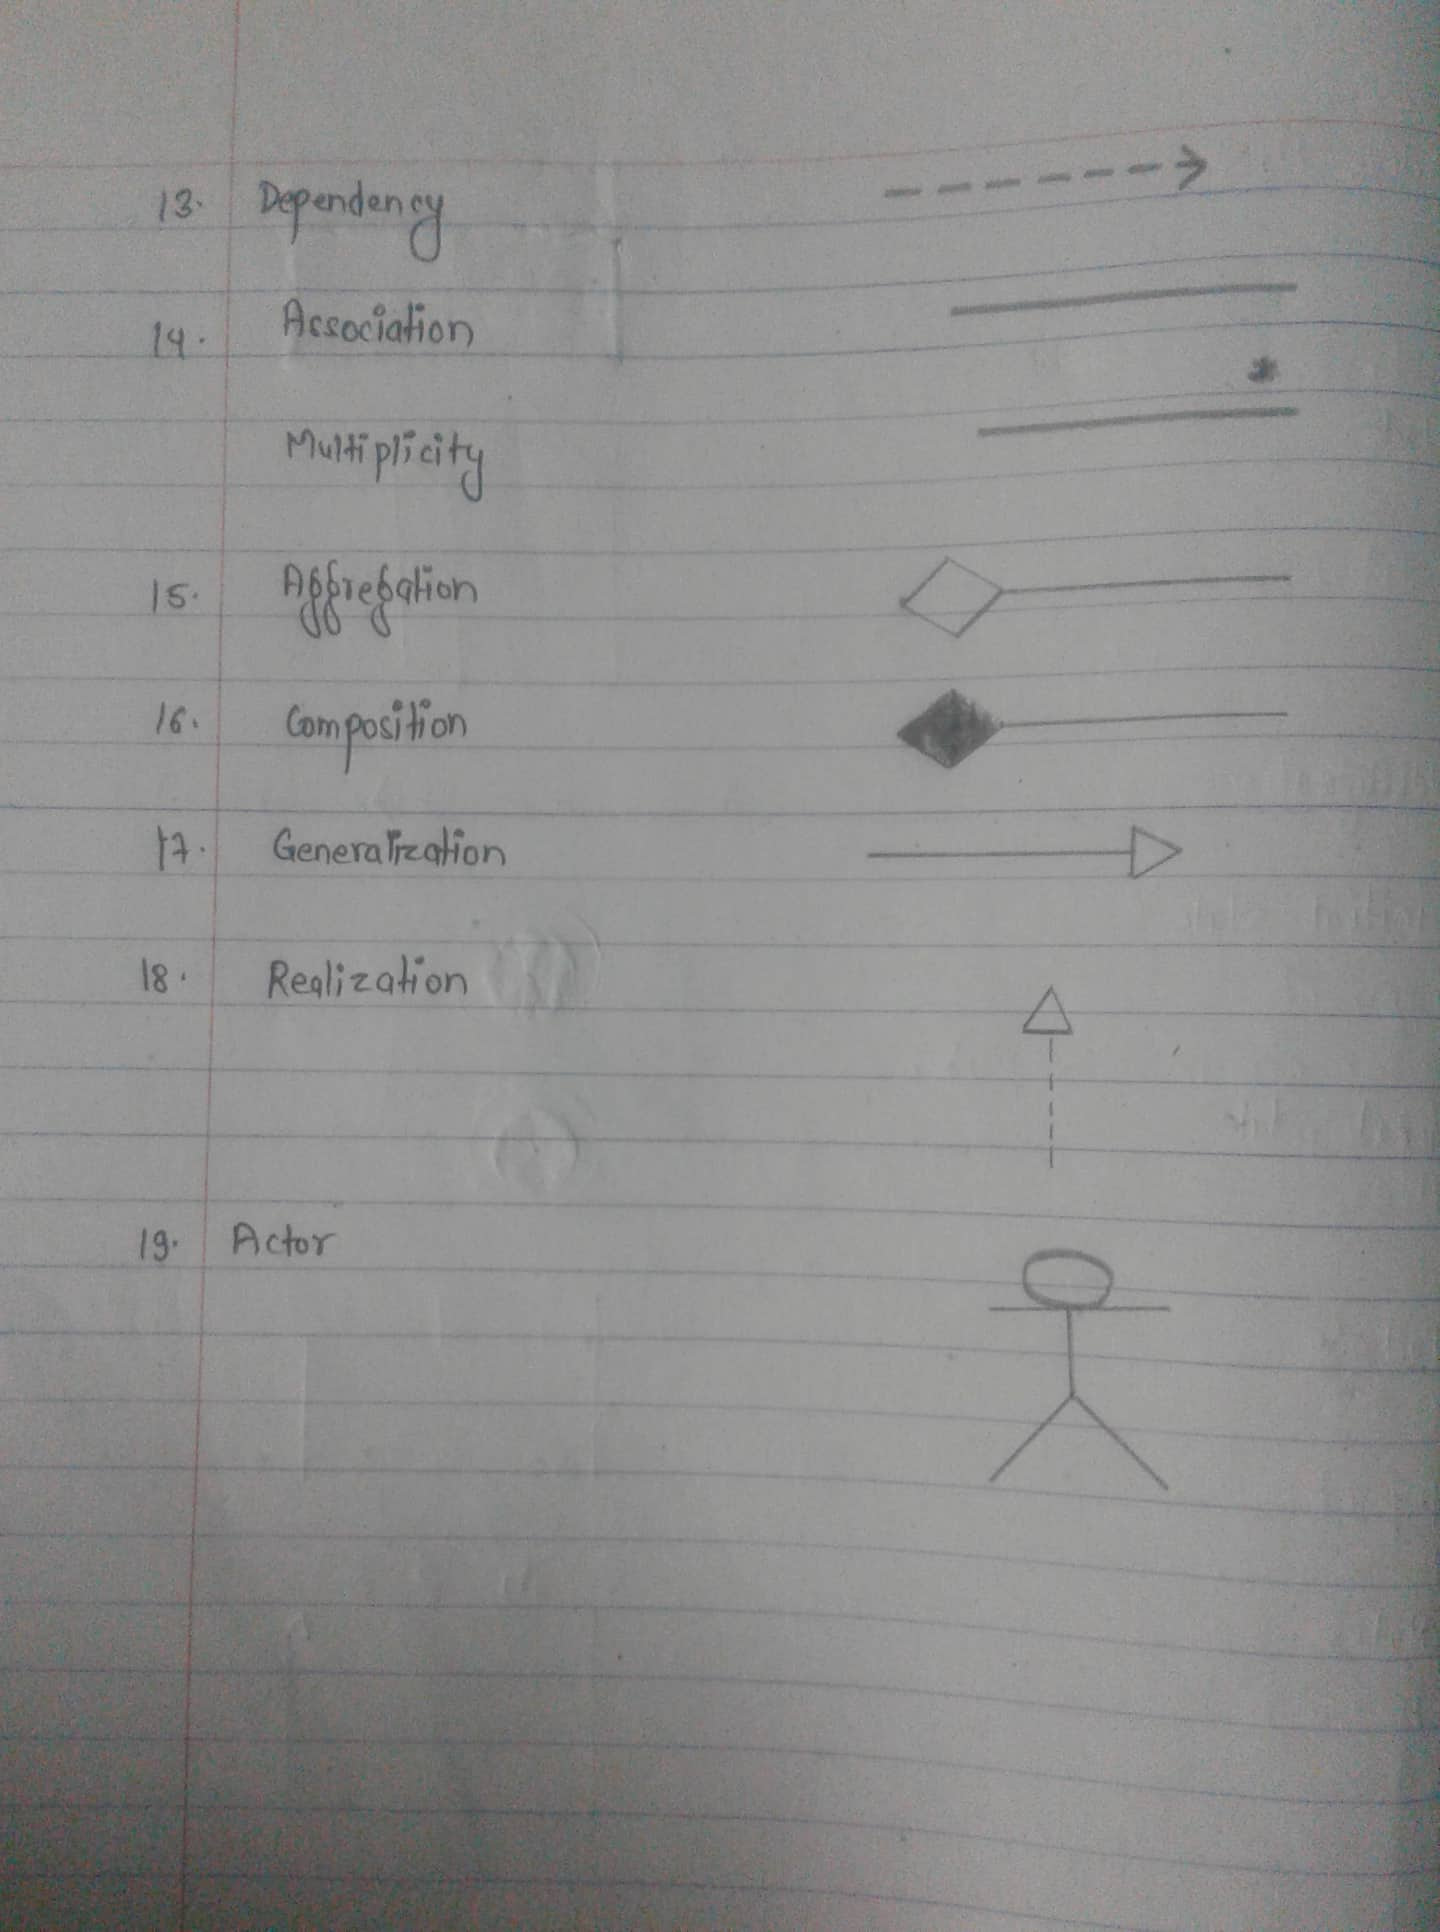 13. Dependency
14. Association
*
Multiplicity
15. Aggregation
16. Composition
17. Generalization
18. Realization
19. Actor